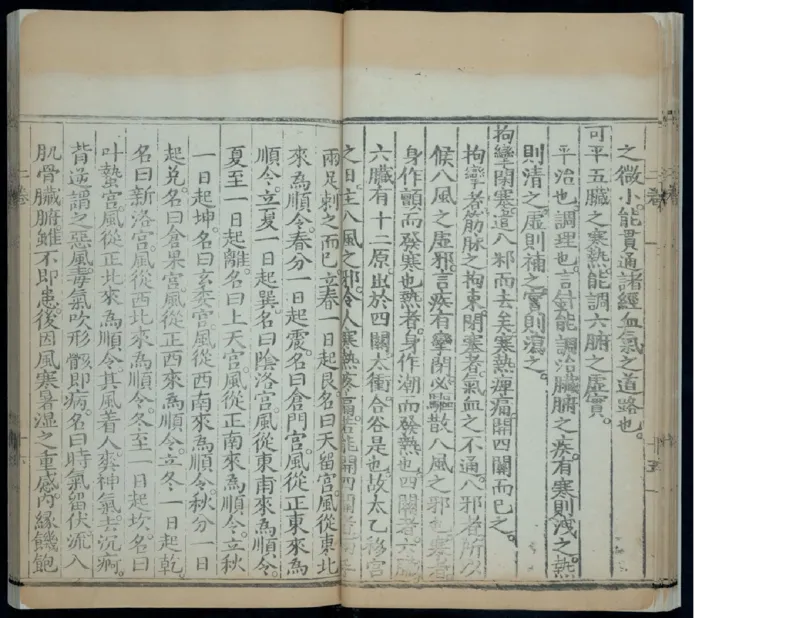 之微小能貫通諸經血氣之道路也。
可平五臟之寒熱能調六腑之虛實。
平治也調理也言針能調治臟腑之疾有寒則洩之熱
則清之虛則補之實則瀉之。
拘攣閉塞。遣八邪而去矣寒熱痺痛開四關而已之。
拘攣者筋脉之拘束閉塞者氣血之不通八邪者所以
候八風之虛邪言疾有攣閉必驅散八風之邪也寒者
身作顫而發寒也熱者身作潮而發熱也四關者六臟
六臟有十二原出於四關太衝合谷是也故太乙移宮
之日主八風之邪令人寒熱疼痛若能開四關者兩手
兩足刺之而已立春一日起艮名曰天留宮風從東北
來為順令春分一日起震名曰倉門宮風從正東來為
順令立夏一日起巽名曰陰洛宮風從東南來為順令。
夏至一日起離名曰上天宮。風從正南來為順令。立秋
一日起坤。名曰玄委宮。風從西南來為順令。秋分一日
起兌名曰倉果宮。風從正西來為順令立冬一日起乾
名曰新洛宮。風從西北來為順令冬至一日起坎名曰
叶蟄宮風從正北來為順令其風着人爽神氣去沉痾。
背逆謂之惡風毒氣吹形骸即病名曰時氣留伏流入
肌骨臟腑雖不即患後因風寒暑湿之重感内緣饑飽
二卷